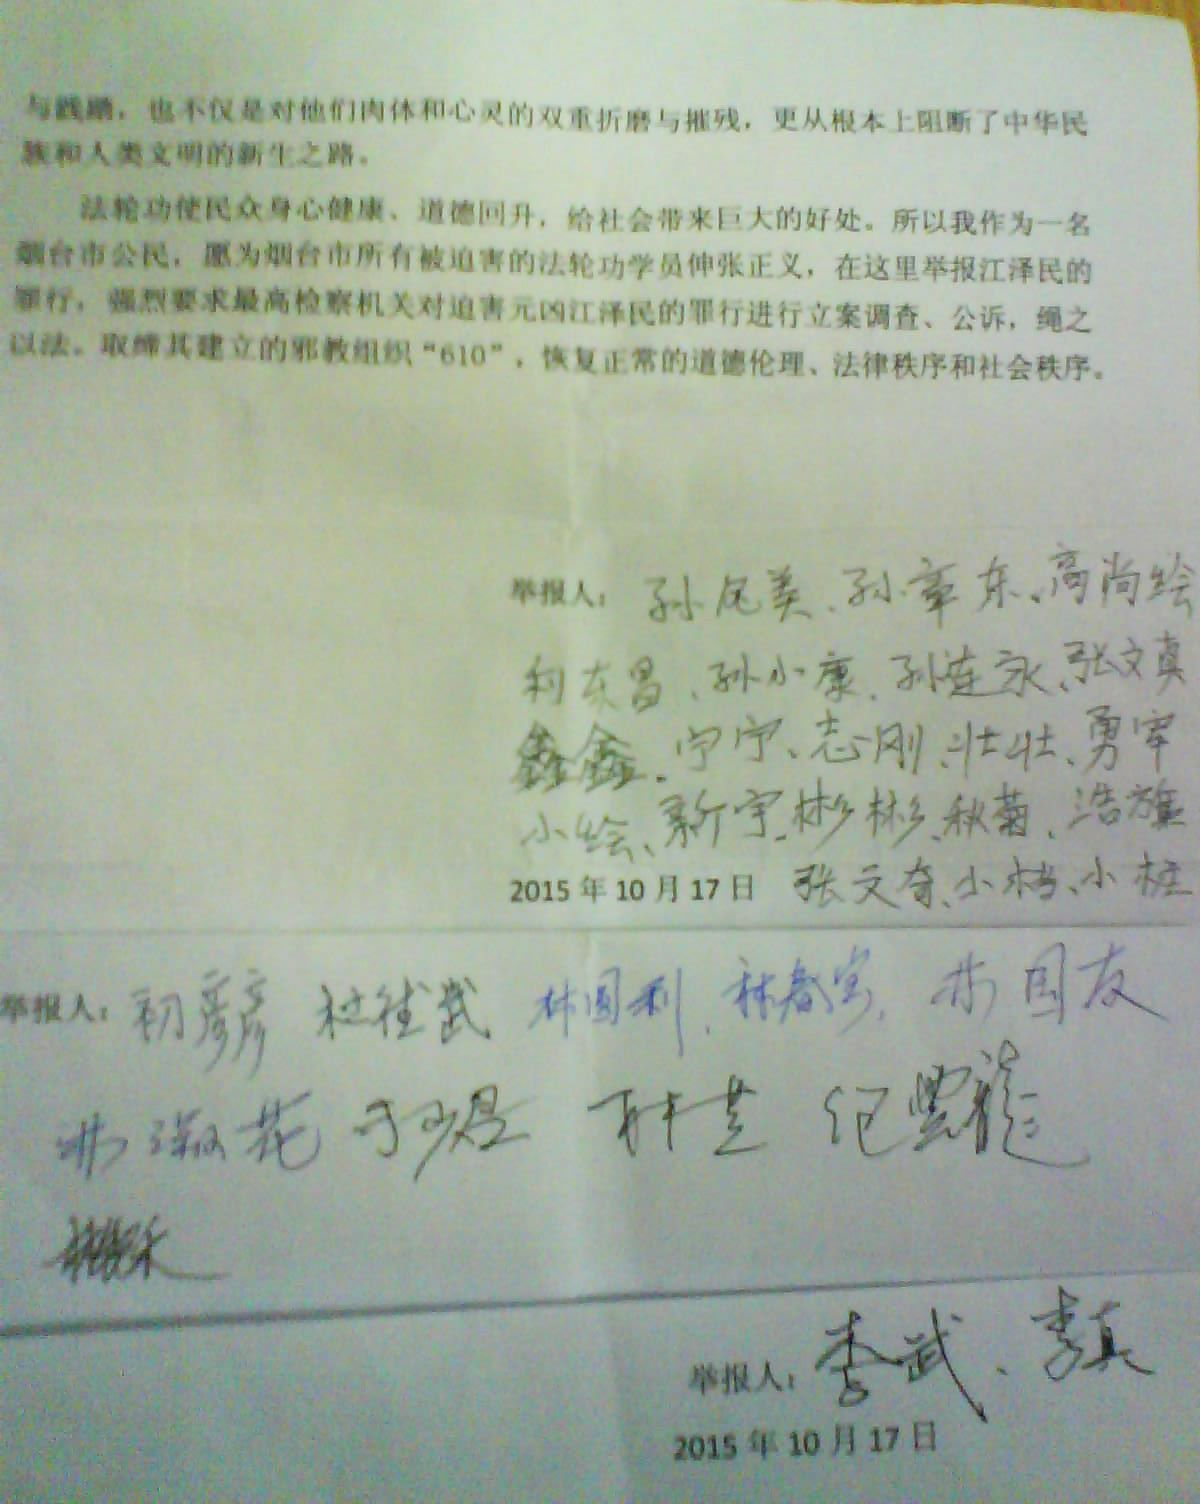 与践踏，也不仅是对他们肉体和心灵的双重折磨与摧残，更从根本上阻断了中华民
族和人类文明的新生之路。
法轮功使民众身心健康、道德回升，给社会带来巨大的好处。所以我作为一名
烟台市公民，愿为烟台市所有被迫害的法轮功学员伸张正义，在这里举报江泽民的
罪行，强烈要求最高检察机关对迫害元凶江泽民的罪行进行立案调查、公诉，绳之
以法。取缔其建立的邪教组织“610”，恢复正常的道德伦理、法律秩序和社会秩序。
举报人：孙凤美、孙章东、高尚绘
孙小康、孙连永、张文真
鑫鑫、宁宁、志刚、壮壮、勇军
小绘、新宇、彬彬、秋菊、浩旗
2015年10月17日 张文奇、小栓、小桩
举报人：初彦彦 林国利、林春 国友
淑花 纪云龙
举报人：李武、李真
2015年10月17日